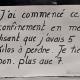 J'ai commencé ce
confinement en me
disant que j'avais 5
kilos à perdre. Je tiens
bon. plus que 7.